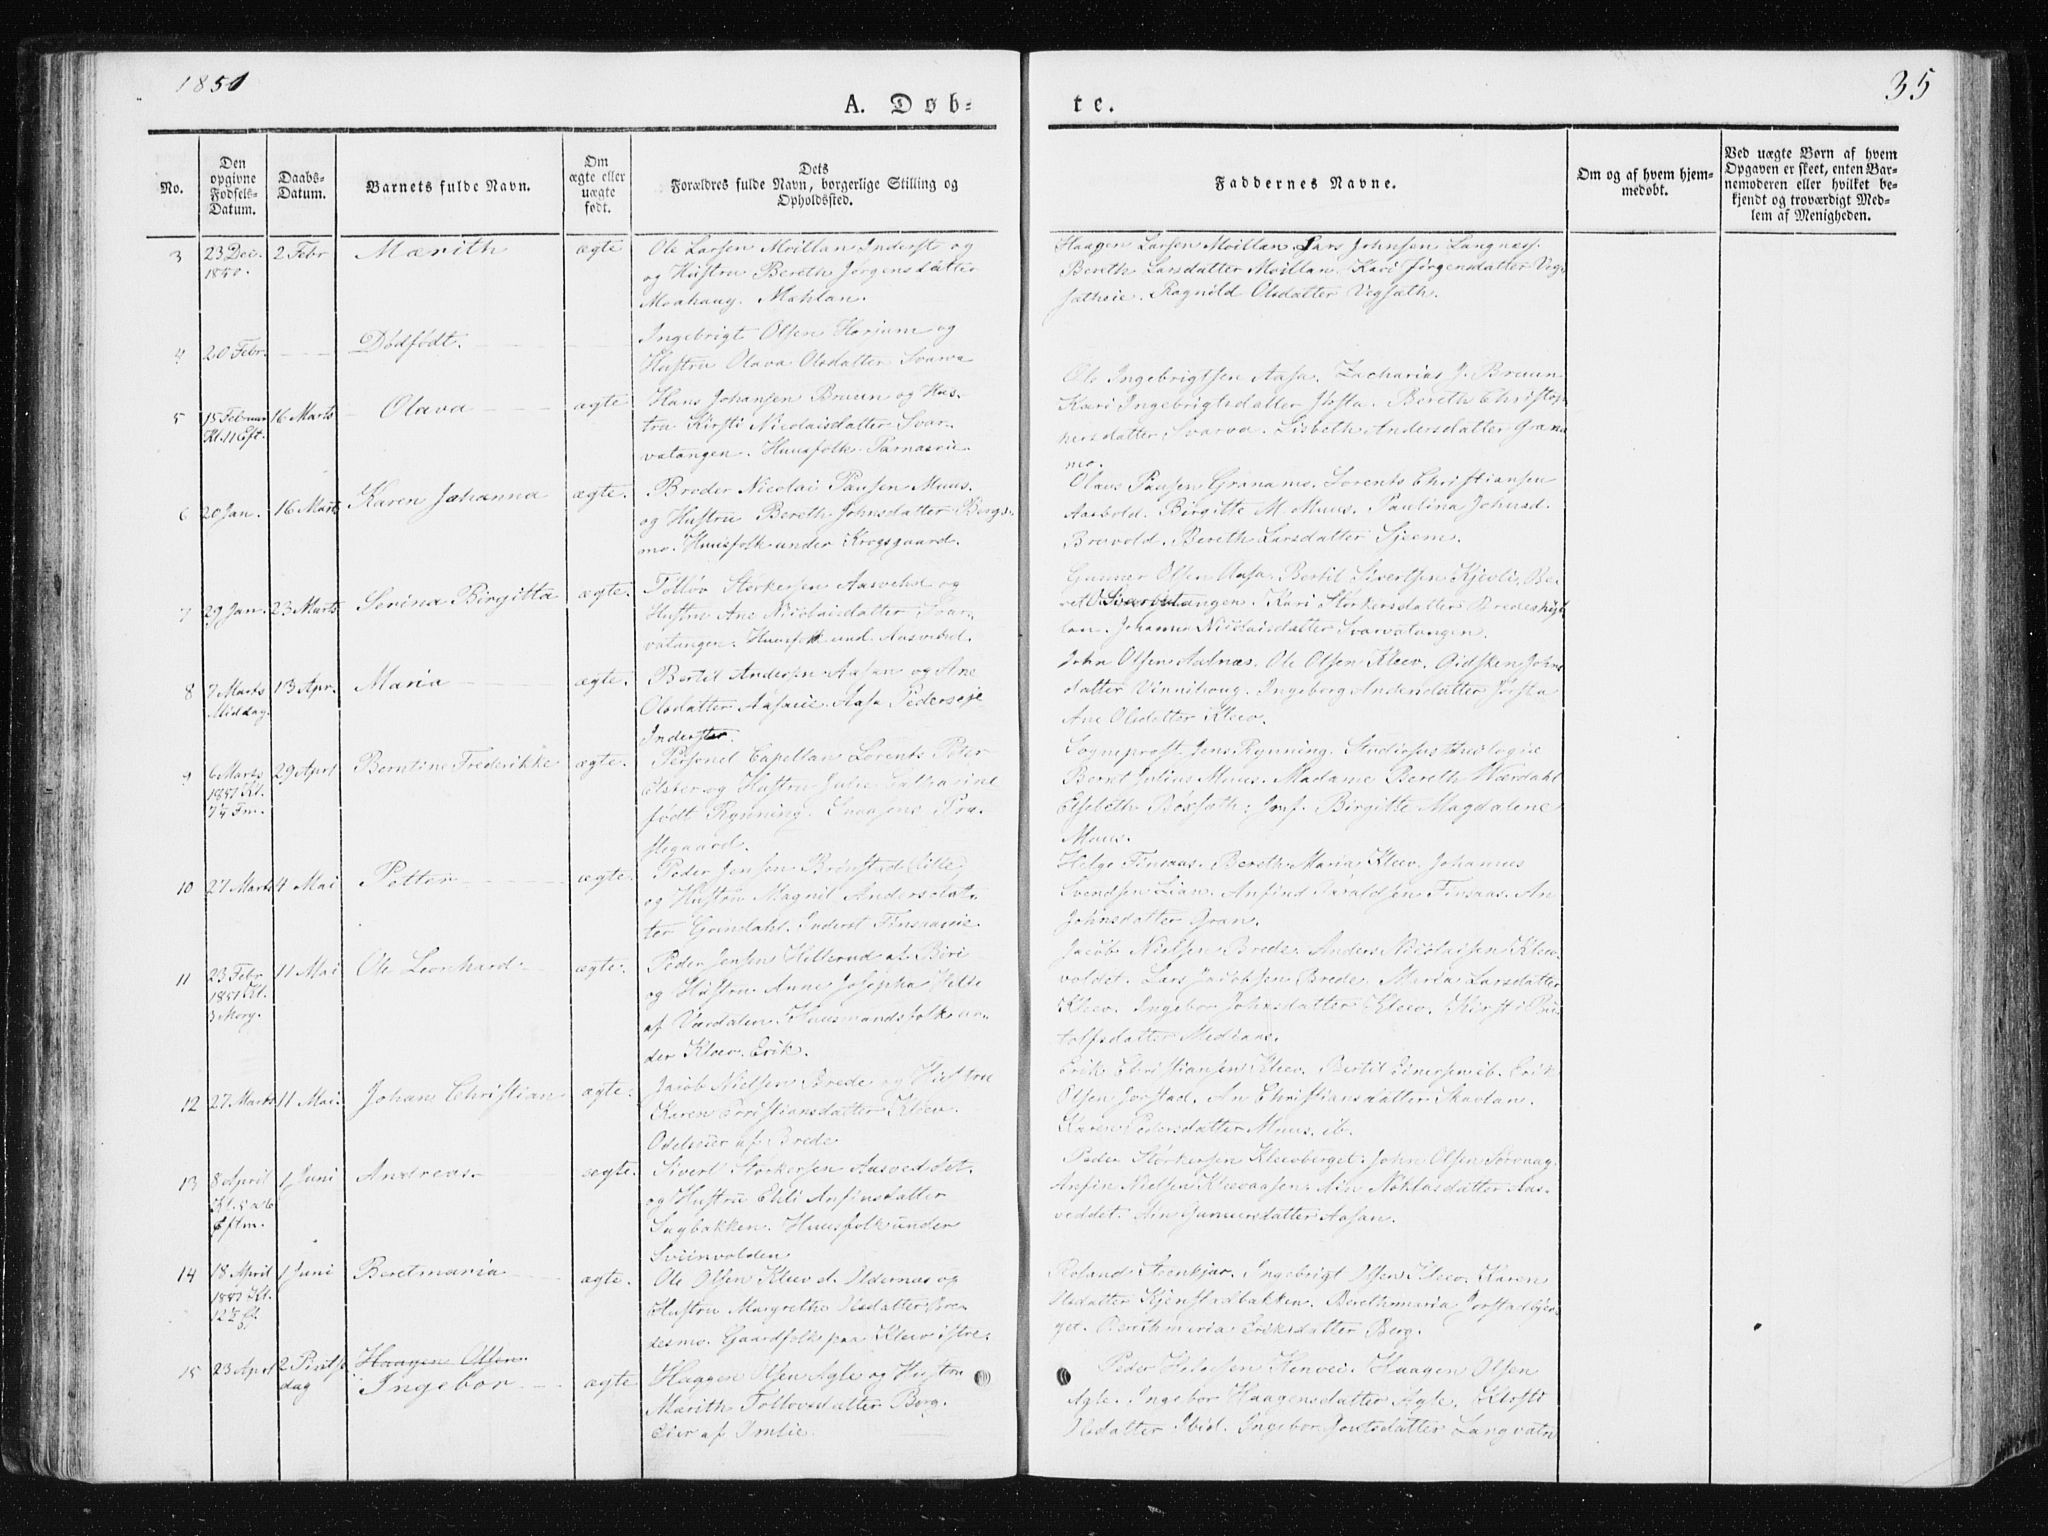 1851
35
A. Døb-
te.
No.
Den opgivne Fødsels-Datum.
Daabs-Datum.
Barnets fulde Navn.
Om ægte eller uægte født.
Dets
Forældres fulde Navn, borgerlige Stilling og
Opholdssted.
Faddernes Navne.
Om og af hvem hjem-
medøbt.
Ved uægte Børn af hvem
Opgaven er skeet, enten Bar-
nemoderen eller hvilket be-
kjendt og troværdigt Med-
lem af Menigheden.
3 23 Dec. 1850. 2 Febr Mærith ægte
Ole Larsen Moillan Inderst og
og Hustru Bereth Jørgensdatter
Moahaug. Mahlan.
Haagen Larsen Moillan. Lars Johnsen Langnæs.
Bereth Larsdatter Moillan. Kari Jørgensdatter Veg-
sætheie. Ragnild Olsdatter Vegsæth.
4 20 Febr. Dødfødt.
Ingebrigt Olsen Harium og
Hustru Olava Olsdatter Svarva
5 15 Februar Kl. 11 Eft. 16 Marts Olava ægte
Hans Johansen Bruun og Hus-
tru Kirsti Nicolaisdatter Svar-
vatangen. Huusfolk Parnasvie.
Ole Ingebrigtsen Aasa. Zacharias J. Bruun
Kari Ingebrigtsdatter Jørsta. Bereth Christop-
hersdatter, Svarva. Lisbeth Andersdatter Grana
mo.
6 20 Jan. 16 Marts Karen Johanna ægte.
Broder Nicolai Pausen Muus.
og Hustru Bereth Johnsdatter Bergs-
mo. Huusfolk under Krogsgaard.
Olaus Pausen Granamo. Lorents Christiansen
Aasbold. Birgitte M. Muus. Paulina Johnsd.
Bravold. Bereth Larsdatter Sjeem.
7 29 Jan. 23 Marts Serina Birgitta ægte.
Tolløv Størkersen Aasvehd og
Hustru Ane Nicolaisdatter Svar-
vatangen. Huusfolk und. Aasvehd.
Gunner Olsen Aasa. Bertil Sivertsen Kjevli. Be-
ret Svarvatangen. Kari Størkersdatter Bredeshyl-
lan. Johanna Nicolaisdatter Svarvatangen.
8 7 Marts Middag. 13 Apr. Maria ægte.
Bertil Andersen Aasan og Ane
Olsdatter Aasaeie. Aasa Pedersøie
Inderster.
John Olsen Aadnæs. Ole Olsen Kleev. Gidsken Johns
datter Vinnihoug. Ingeborg Andersdatter Jørsta
Ane Olsdatter Kleev.
9 6 Marts 1851 Kl. 7¼ Fm. 29 April Berntine Frederikke ægte.
Personel Capellan Lorents Peter
Elster og Hustru Julie Cathrarine
født Rynning. Snaasens Præ-
stegaard.
Sogneprost Jens Rynning. Studiosus theologiæ
Bernt Julius Muus. Madame Bereth Værdahl
Elsebeth Boxsath: Jmf. Birgitte Magdalene
Muus.
10 27 Marts 4 Mai Petter ægte.
Peder Jensen Brønstad (Lille)
og Hustru Magnil Andersdat-
ter Grindahl. Inderst Finsaaseie.
Helge Finsaas. Bereth Maria Kleev. Johannes
Svendsen Lian. Anfind Taraldsen Finsaas. An
Johnsdatter Gran.
11 23 Febr 1851 Kl. 3 Morg. 11 Mai Ole Leonhard ægte.
Peder Jensen Hillerud af Biri
og Hustru Anne Josepha Helse
af Værdalen. Huusmandsfolk un-
der Kleev. Erik.
Jacob Nielsen Brede. Anders Nicolaisen Kleev-
voldet. Lars Jacobsen Brede. Maria Larsdatter
Kleev. Ingebor Johnsdatter Kleev. Kirsti Pau-
tolfsdatter Mediaas.
12 27 Marts 11 Mai. Johan Christian ægte.
Jacob Nielsen Brede og Hustru
Karen Cristiansdatter Kleev.
Odelseier af Brede
Erik Christiansen Kleev. Bertil Einersen ib. Erik
Olsen Jorstad. An Christiansdatter Skavlan.
Karen Pedersdatter Muus. ib.
13 8 April Kl. 5 a 6 Eftm. 1 Juni Andreas ægte.
Sivert Størkersen Aasveddet.
og Hustru Ehli Anfinsdatter
Sagbakken. Huusfolk under
Sviinvolden
Peder Størkersen Kleevberget. John Olsen Sørvaag.
Anfin Nielsen Kleevaasen. Ain Nøklasdatter Aas-
veddet. Ain Gunnersdatter Aasan.
14 18 April 1851 Kl. 1 Juni Beretmaria ægte.
Ole Olsen Kleev d. Oldernæs og
Hustru Margrethe Olsdatter Bre-
desmo. Gaardfolk paa Kleev istre.
Roland Steenkjær. Ingebrigt Olsen Kleev. Karen
Olsdatter Kjenstadbakken. Berethmaria Jorstadber-
get. Berithmeria Eriksdatter Berg.
15 23 April 2 Pintse dag Haagen Olsen
Ingebor ægte
Haggen Olsen Agle og Hustru
Marith Tolløvsdatter Berg.
Eier af Imsie.
Peder Kenvei. Haagen Olsen
Agle. Ingebor Haagensdatter Agle. Kirsti
Olsdatter Ibid. Ingebor Jontsdatter Langvatn